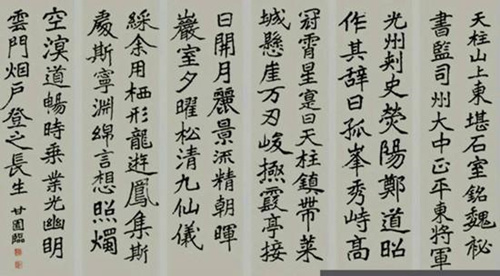 天柱山上東堪石室銘魏祕
書監司州大中正平東將軍
光州刾史熒陽鄭道昭
作其辭曰孤峯秀峙高
冠霄星寔曰天柱鎮帶萊
城懸崖万刃峻極霞亭接
日開月麗景流精朝暉
巖室夕曜松清九仙儀
綵余用栖形龍遊鳳集斯
處斯寧淵綿言想照燭
空溟道暢時乗業光幽明
雲門烟戶登之長生 甘臨